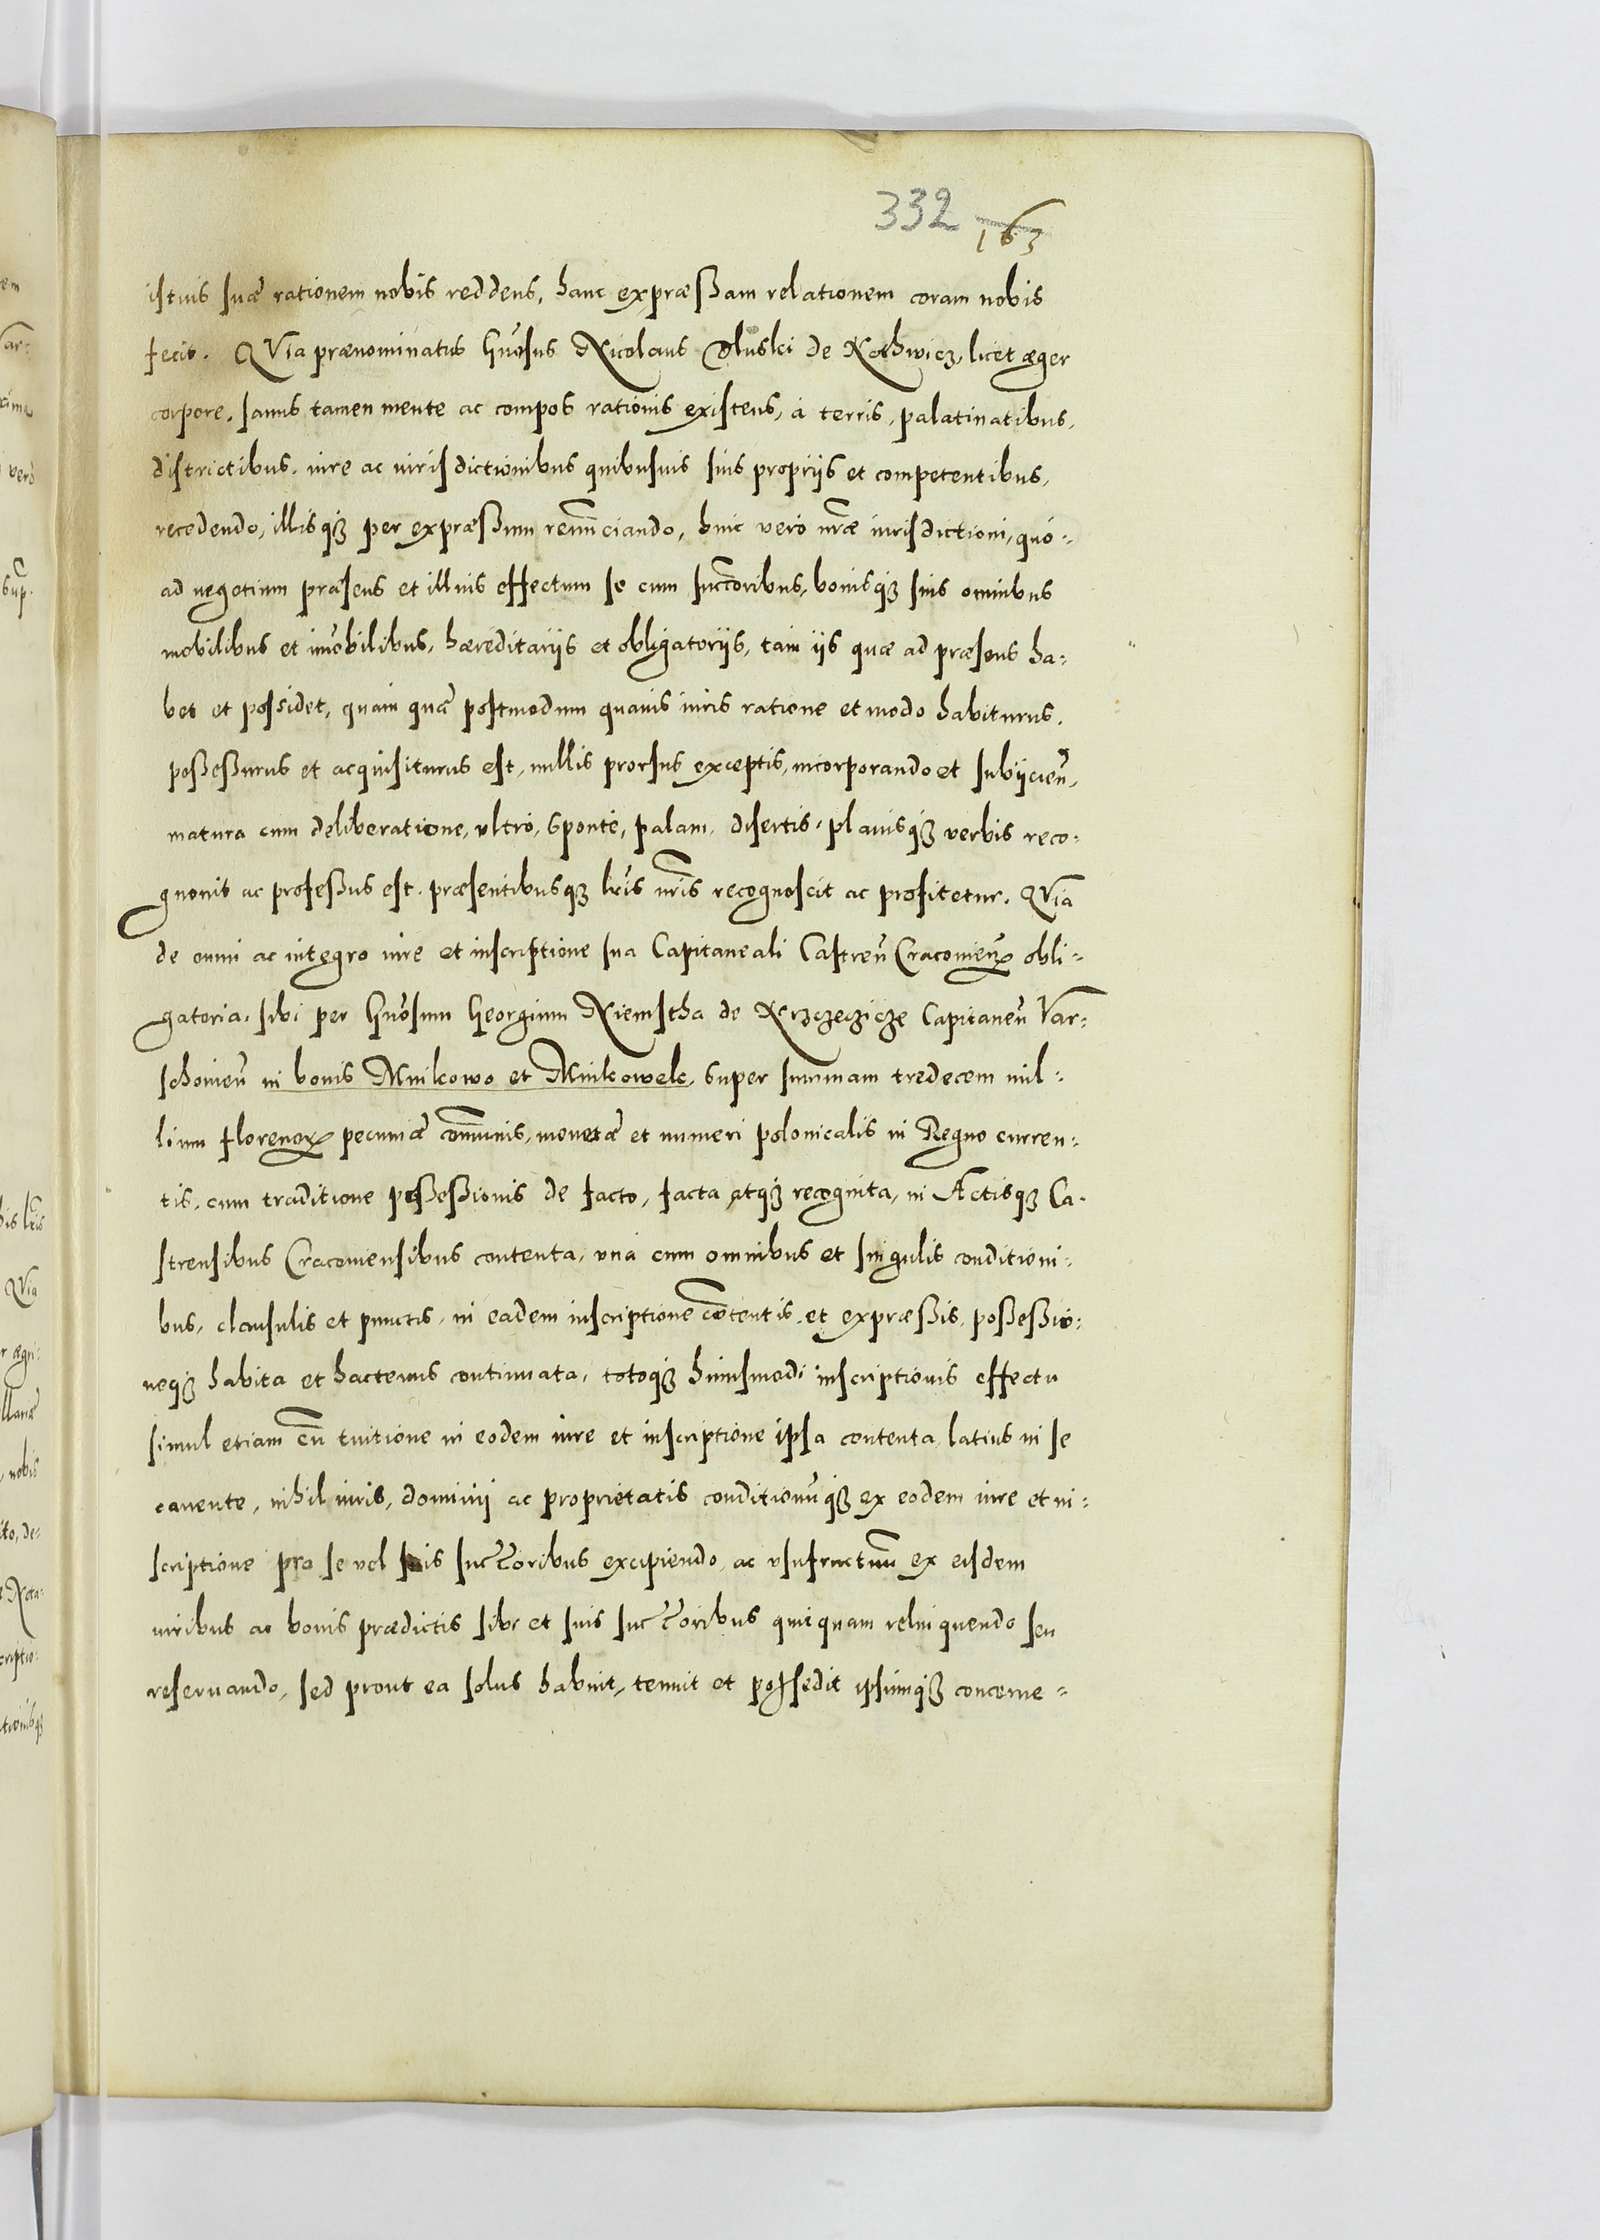 332 163
istius suæ rationem nobis reddens, hanc expræßam relationem coram nobis
fecit. QVia prænominatus Gnosus Nicolaus Oluski de Kothwicz, licet æger
corpore, sanus tamen mente ac compos rationis existens, à terris, palatinatibus,
districtibus, iure ac iurisdictionibus quibusuis suis proprijs et competentibus,
recedendo, illisq3 per expræßum renūciando, huic verò nræ iurisdictioni, quo-
ad negotium præsens et illius effectum se cum succoribus, bonisq3 suis omnibus
mobilibus et imobilibus, hæreditarijs et obligatorijs, tam ijs quæ ad præsens ha-
bet et possidet, quam quæ postmodum quauis iuris ratione et modo habiturus,
poßeßurus et acquisiturus est, nullis prorsus exceptis, incorporando et subijcien,
matura cum deliberatione, vltrò, sponte, palam, disertis, planisq3 verbis reco-
gnouit ac profeßus est, præsentibusq3 lris nris recognoscit ac profitetur. QVia
de omni ac integro iure et inscriptione sua Capitaneali Castren Cracouien obli-
gatoria, sibi per Gnosum Georgium Niemstha de Krzczeczicze Capitaneū Var-
schouien in bonis Mnikowo et Mnikowek, super summam tredecem mil-
lium florenoꝝ pecuniæ cōmunis, monetæ et numeri polonicalis in Regno curren-
tis, cum traditione poßeßionis de facto, facta atq3 recognita, in Actisq3 Ca-
strensibus Cracouiensibus contenta, vnà cum omnibus et singulis conditioni-
bus, clausulis et punctis, in eadem inscriptione cōtentis et expræßis, poßeßio-
neq3 habita et hactenus continuata, totoq3 huiusmodi inscriptionis effectu
simul etiam cū tuitione in eodem iure et inscriptione ipsa contenta latius in se
cauente, nihil iuris, dominij ac proprietatis conditionūq3 ex eodem iure et in-
scriptione pro se vel suis succoribus excipiendo, ac vsufructuū ex eisdem
iuribus ac bonis prædictis sibi et suis succoribus quicquam relinquendo seu
reseruando, sed prout ea solus habuit, tenuit et possedit ipsumq3 concerne-